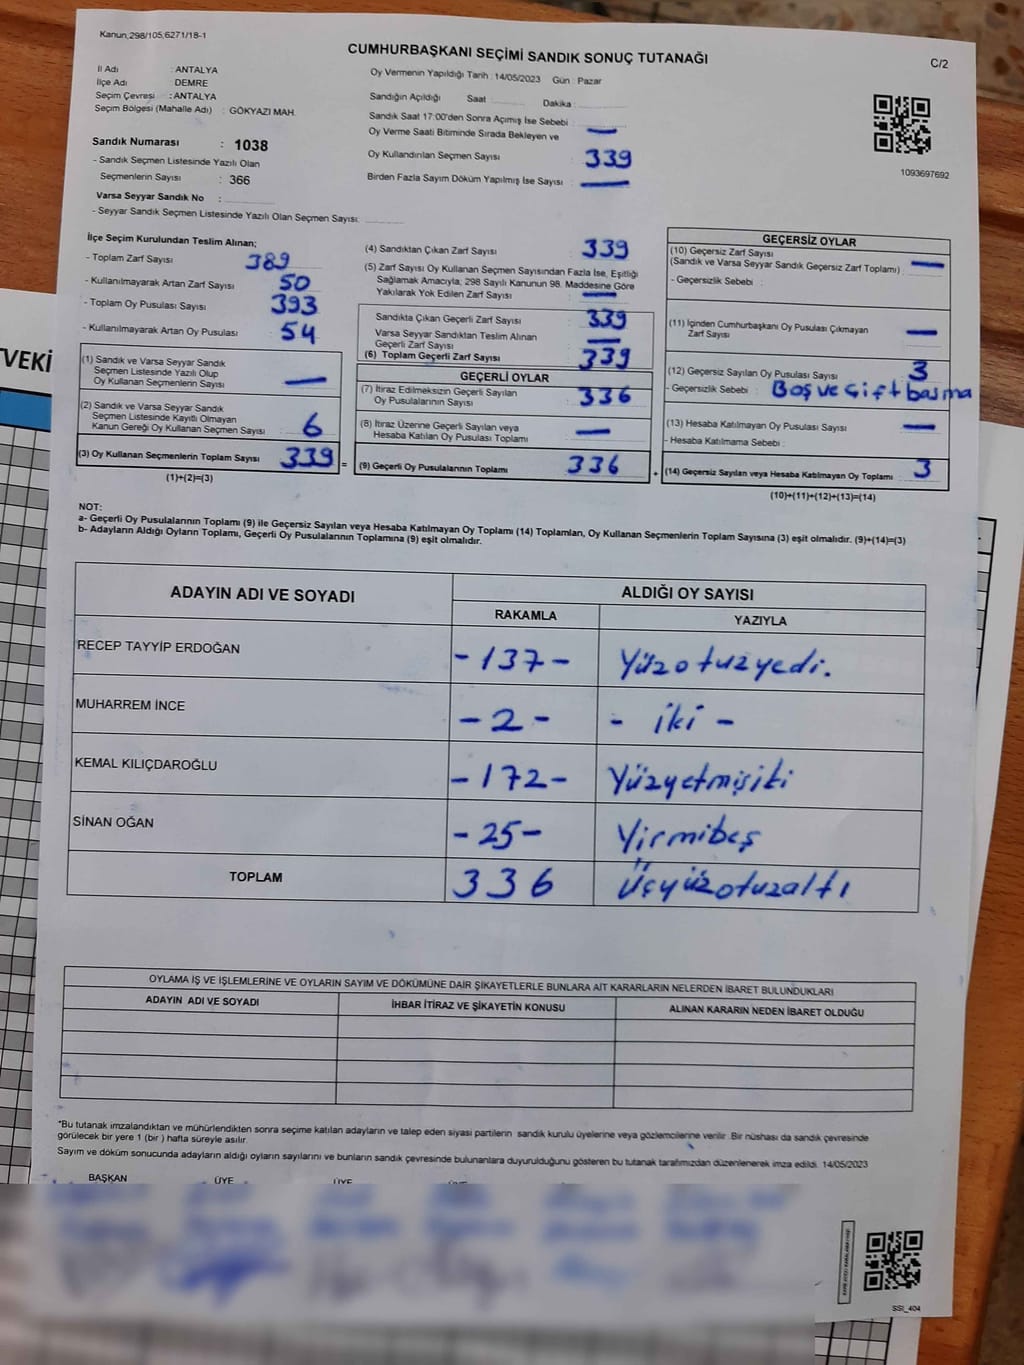 Kanun,298/105,6271/18-1
CUMHURBAŞKANI SEÇİMİ SANDIK SONUÇ TUTANAĞI
C/2
İl Adı : ANTALYA
İlçe Adı : DEMRE
Seçim Çevresi : ANTALYA
Seçim Bölgesi (Mahalle Adı) : GÖKYAZI MAH.
Sandık Numarası : 1038
- Sandık Seçmen Listesinde Yazılı Olan
Seçmenlerin Sayısı : 366
Varsa Seyyar Sandık No :
- Seyyar Sandık Seçmen Listesinde Yazılı Olan Seçmen Sayısı:
Oy Vermenin Yapıldığı Tarih : 14/05/2023 Gün : Pazar
Sandığın Açıldığı Saat Dakika
Sandık Saat 17:00'den Sonra Açımış İse Sebebi
Oy Verme Saati Bitiminde Sırada Bekleyen ve : —
Oy Kullandırılan Seçmen Sayısı : 339
Birden Fazla Sayım Döküm Yapılmış İse Sayısı : —
1093697692
İlçe Seçim Kurulundan Teslim Alınan;
- Toplam Zarf Sayısı 389
- Kullanılmayarak Artan Zarf Sayısı : 50
- Toplam Oy Pusulası Sayısı : 393
- Kullanılmayarak Artan Oy Pusulası : 54
(1) Sandık ve Varsa Seyyar Sandık
Seçmen Listesinde Yazılı Olup
Oy Kullanan Seçmenlerin Sayısı : —
(2) Sandık ve Varsa Seyyar Sandık
Seçmen Listesinde Kayıtlı Olmayan
Kanun Gereği Oy Kullanan Seçmen Sayısı : 6
(3) Oy Kullanan Seçmenlerin Toplam Sayısı : 339 =
(1)+(2)=(3)
(4) Sandıktan Çıkan Zarf Sayısı : 339
(5) Zarf Sayısı Oy Kullanan Seçmen Sayısından Fazla İse, Eşitliği
Sağlamak Amacıyla; 298 Sayılı Kanunun 98. Maddesine Göre
Yakılarak Yok Edilen Zarf Sayısı : —
Sandıkta Çıkan Geçerli Zarf Sayısı : 339
Varsa Seyyar Sandıktan Teslim Alınan
Geçerli Zarf Sayısı : —
(6) Toplam Geçerli Zarf Sayısı : 339
GEÇERLİ OYLAR
(7) İtiraz Edilmeksizin Geçerli Sayılan
Oy Pusulalarının Sayısı : 336
(8) İtiraz Üzerine Geçerli Sayılan veya
Hesaba Katılan Oy Pusulası Toplamı : —
(9) Geçerli Oy Pusulalarının Toplamı : 336 +
GEÇERSİZ OYLAR
(10) Geçersiz Zarf Sayısı
(Sandık ve Varsa Seyyar Sandık Geçersiz Zarf Toplamı) : —
- Geçersizlik Sebebi :
(11) İçinden Cumhurbaşkanı Oy Pusulası Çıkmayan
Zarf Sayısı : —
(12) Geçersiz Sayılan Oy Pusulası Sayısı : 3
- Geçersizlik Sebebi : Boş ve çift basma
(13) Hesaba Katılmayan Oy Pusulası Sayısı : —
- Hesaba Katılmama Sebebi :
(14) Geçersiz Sayılan veya Hesaba Katılmayan Oy Toplamı : 3
(10)+(11)+(12)+(13)=(14)
NOT:
a- Geçerli Oy Pusulalarının Toplamı (9) ile Geçersiz Sayılan veya Hesaba Katılmayan Oy Toplamı (14) Toplamları, Oy Kullanan Seçmenlerin Toplam Sayısına (3) eşit olmalıdır. (9)+(14)=(3)
b- Adayların Aldığı Oyların Toplamı, Geçerli Oy Pusulalarının Toplamına (9) eşit olmalıdır.
ADAYIN ADI VE SOYADI ALDIĞI OY SAYISI
RAKAMLA YAZIYLA
RECEP TAYYİP ERDOĞAN -137- Yüzotuzyedi.
MUHARREM İNCE -2- - iki -
KEMAL KILIÇDAROĞLU -172- Yüzyetmişiki
SİNAN OĞAN -25- Yirmibeş
TOPLAM 336 Üçyüzotuzaltı
OYLAMA İŞ VE İŞLEMLERİNE VE OYLARIN SAYIM VE DÖKÜMÜNE DAİR ŞİKAYETLERLE BUNLARA AİT KARARLARIN NELERDEN İBARET BULUNDUKLARI
ADAYIN ADI VE SOYADI İHBAR İTİRAZ VE ŞİKAYETİN KONUSU ALINAN KARARIN NEDEN İBARET OLDUĞU
*Bu tutanak imzalandıktan ve mühürlendikten sonra seçime katılan adayların ve talep eden siyasi partilerin sandık kurulu üyelerine veya gözlemcilerine verilir. Bir nüshası da sandık çevresinde
görülecek bir yere 1 (bir ) hafta süreyle asılır.
Sayım ve döküm sonucunda adayların aldığı oyların sayılarını ve bunların sandık çevresinde bulunanlara duyurulduğunu gösteren bu tutanak tarafımızdan düzenlenerek imza edildi. 14/05/2023
BAŞKAN ÜYE ÜYE ÜYE
SSİ_404
TVEKİ